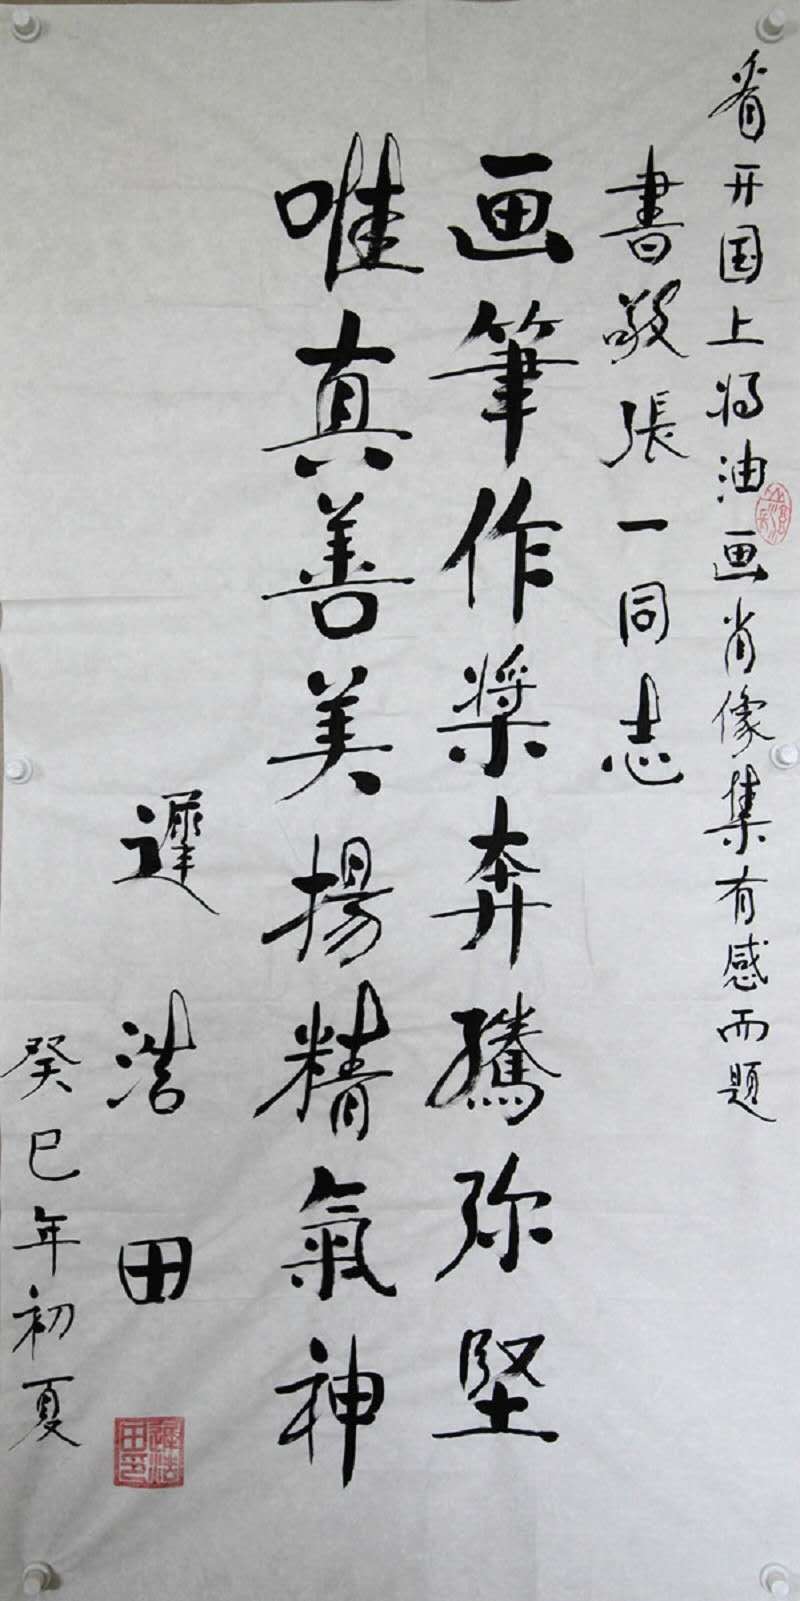 看开国上将油画肖像集有感而题
書敬張一同志
画筆作槳奔騰弥堅
唯真善美揚精氣神
遲浩田
癸巳年初夏
遲浩田印